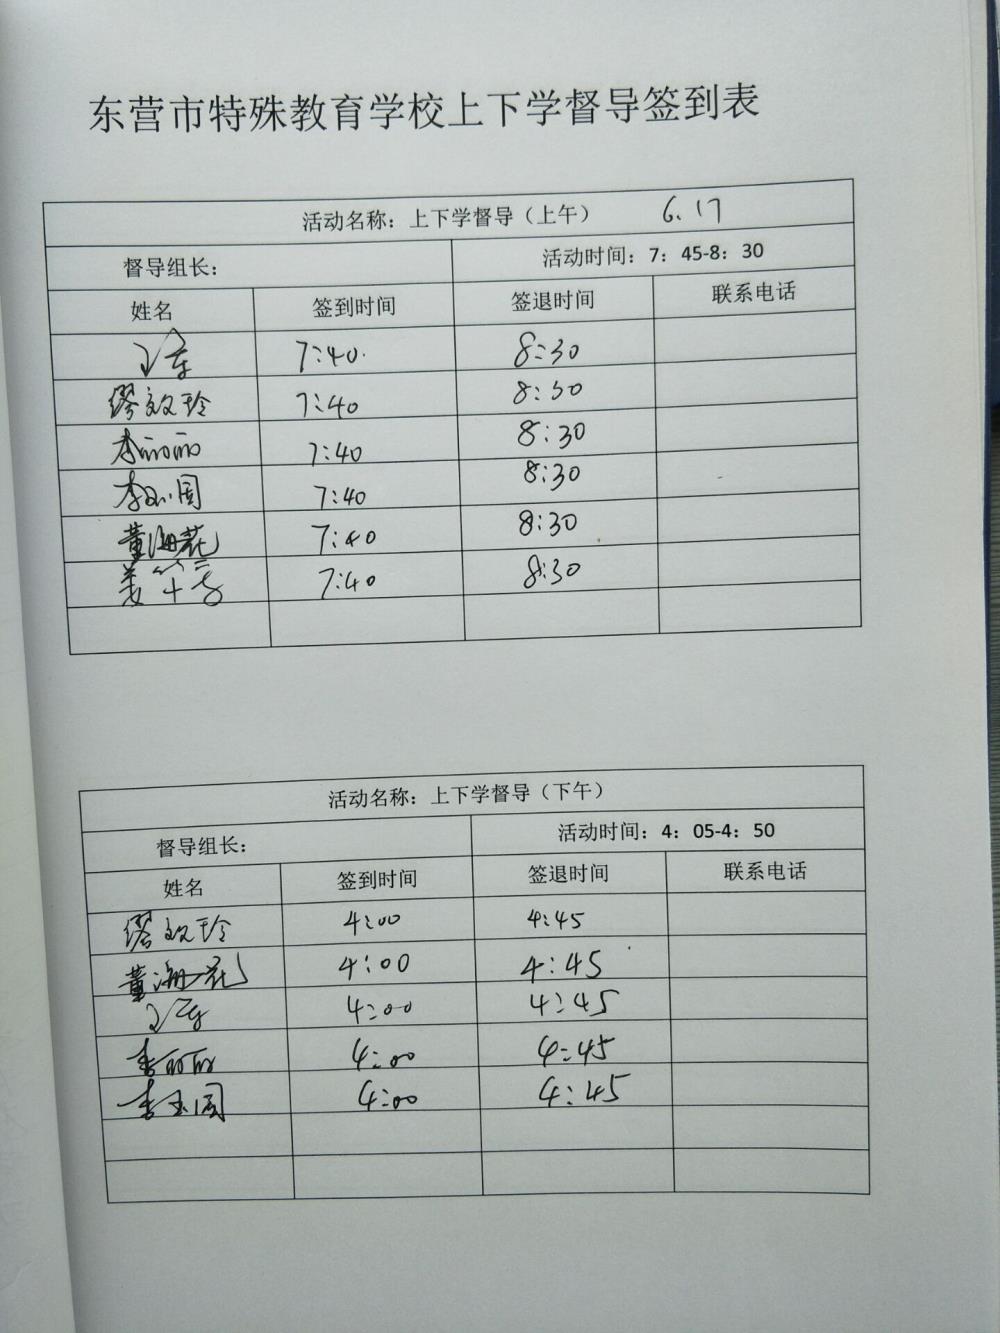 东营市特殊教育学校上下学督导签到表
活动名称：上下学督导（上午） 6.17
督导组长： 活动时间：7：45-8：30
姓名 签到时间 签退时间 联系电话
7:40 8:30
缪效玲 7:40 8:30
李丽丽 7:40 8:30
李玉国 7:40 8:30
董海花 7:40 8:30
姜 7:40 8:30
活动名称：上下学督导（下午）
督导组长： 活动时间：4：05-4：50
姓名 签到时间 签退时间 联系电话
缪效玲 4:00 4:45
董海花 4:00 4:45
4:00 4:45
李丽丽 4:00 4:45
李玉国 4:00 4:45